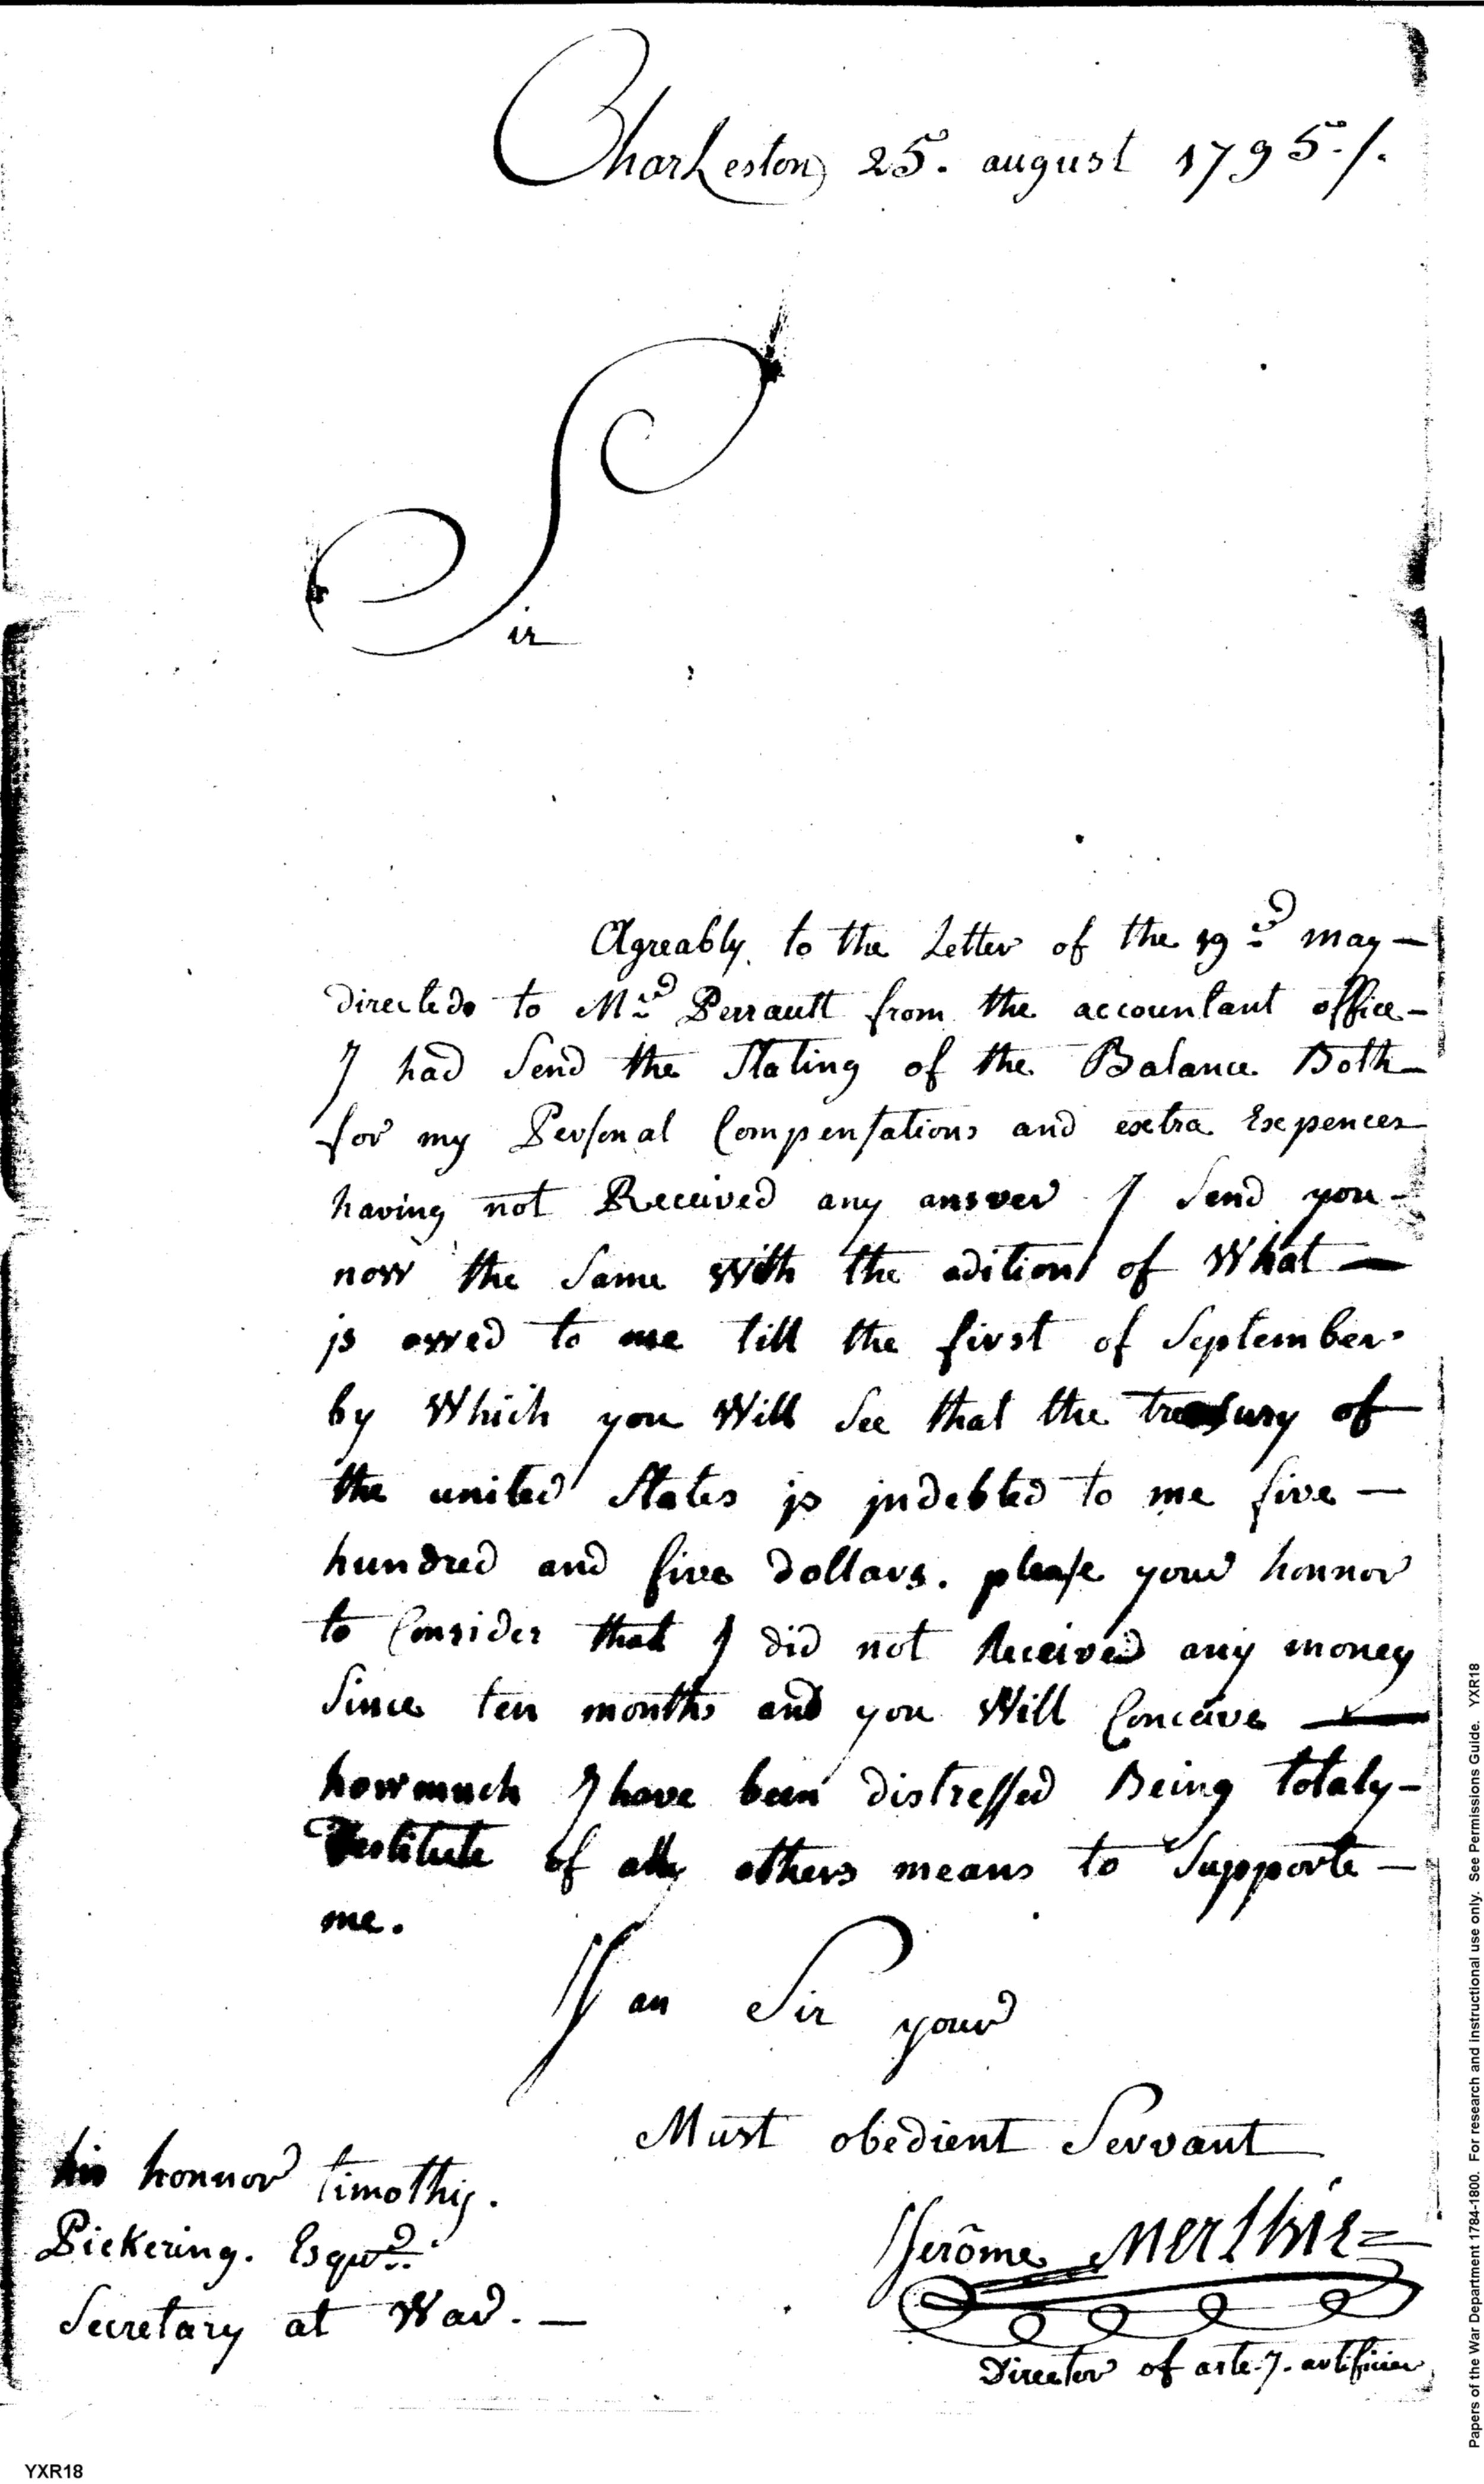 Charleston 25. august 1795./.
Sir
Agreably. to the Letter of the 19.d may —
directed to Mr. Perrault from the accountant office —
I had Send the Stating of the Balance Both —
for my Personal Compensations and extra Expences
having not Received any answer I Send you —
now the Same With the adition of What —
is owed to me till the first of September.
by Which you Will See that the treasury of
the united States is indebted to me five —
hundred and five dollars. please your honnor
to Consider that I did not Received any money
Since ten months and you Will Conceive —
how much I have been distressed Being totaly —
destitute of all others means to Supporte —
me.
I an Sir your
Must obedient Servant
his honnor timothy.
Pickering. Esqur.
Secretary at War. —
Jerôme
Director of arte.y. artificier
Papers of the War Department 1784-1800. For research and instructional use only. See Permissions Guide. YXR18
YXR18